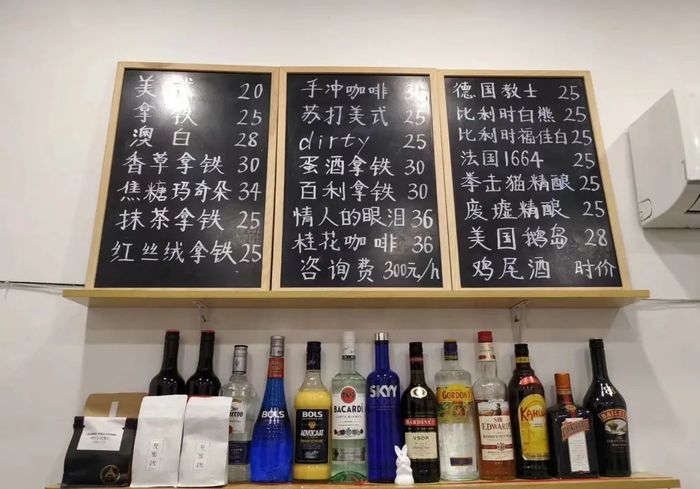 美式 20
拿铁 25
澳白 28
香草拿铁 30
焦糖玛奇朵 34
抹茶拿铁 25
红丝绒拿铁 25
手冲咖啡
苏打美式 25
dirty 25
蛋酒拿铁 30
百利拿铁 30
情人的眼泪 36
桂花咖啡 36
咨询费 300元/h
德国教士 25
比利时白熊 25
比利时福佳白 25
法国1664 25
拳击猫精酿 25
废墟精酿 25
美国鹅岛 28
鸡尾酒 时价
BOLS
BOLS
ADVOCAAT
BACARDI
SKYY
BARDINET
VSOP
GORDON'S
SIR
EDWARD'S
KAHLÚA
BAILEYS